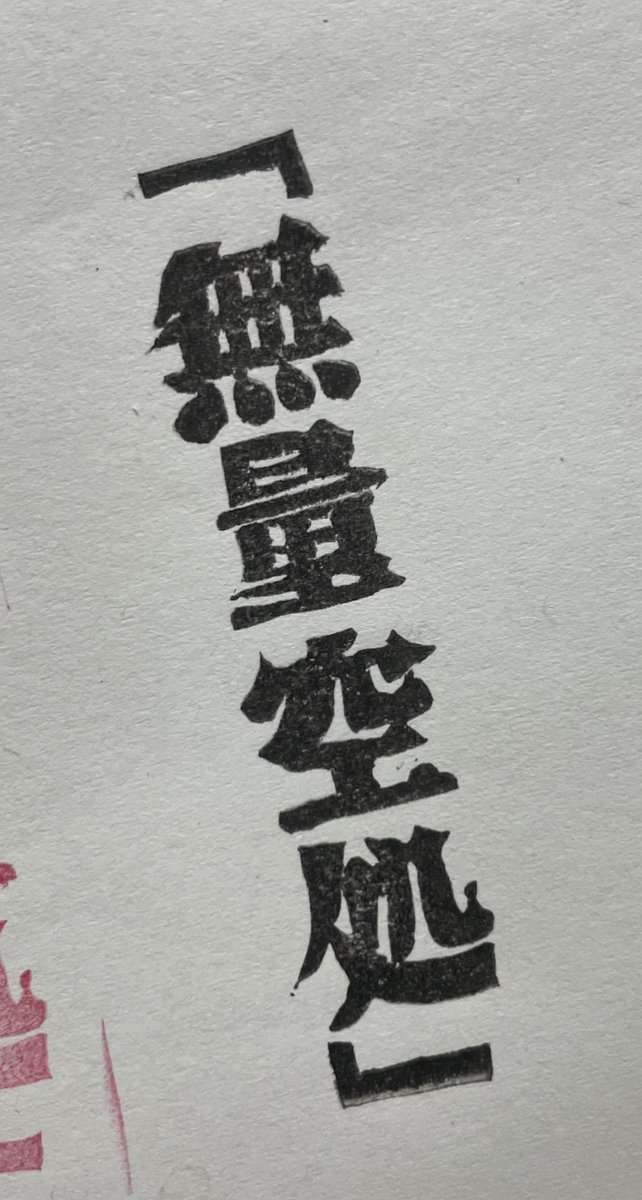 「無量空処」